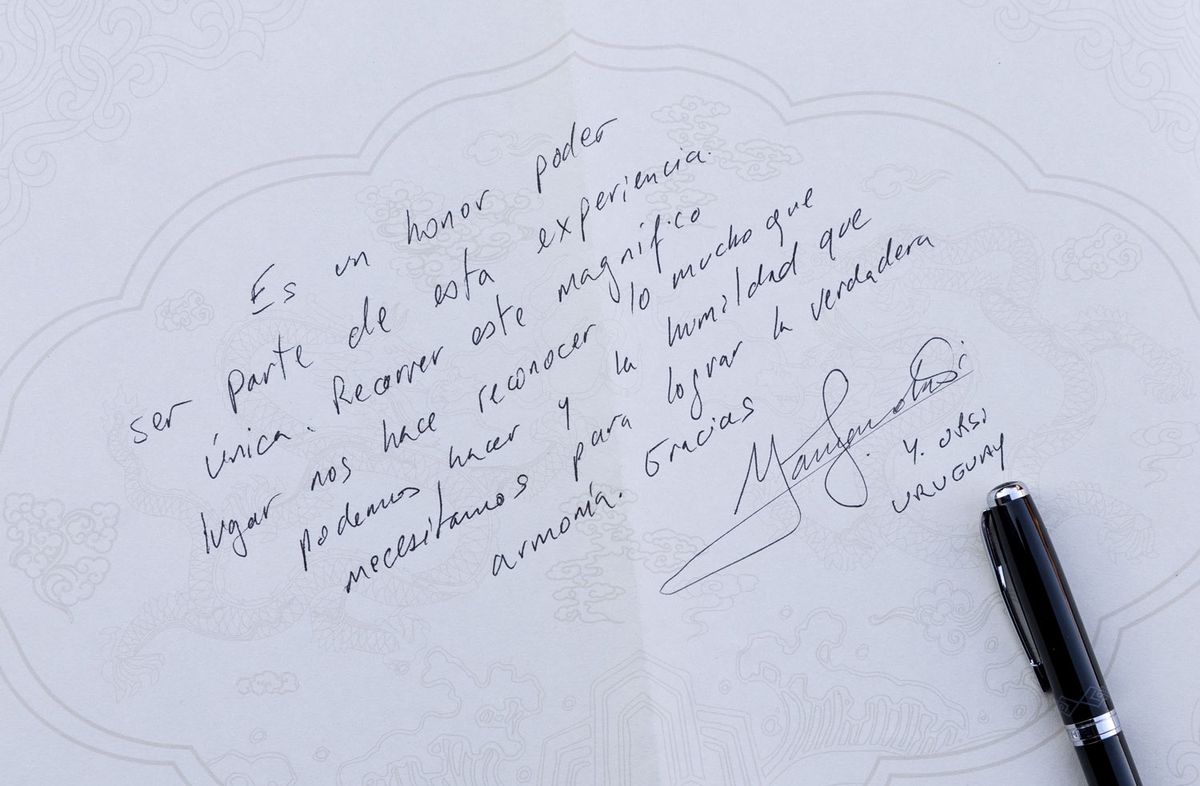 Es un honor poder
ser parte de esta experiencia
única. Recorrer este magnífico
lugar nos hace reconocer lo mucho que
podemos hacer y la humildad que
necesitamos para lograr la verdadera
armonía. Gracias
Yamandú Orsi
Y. ORSI
URUGUAY